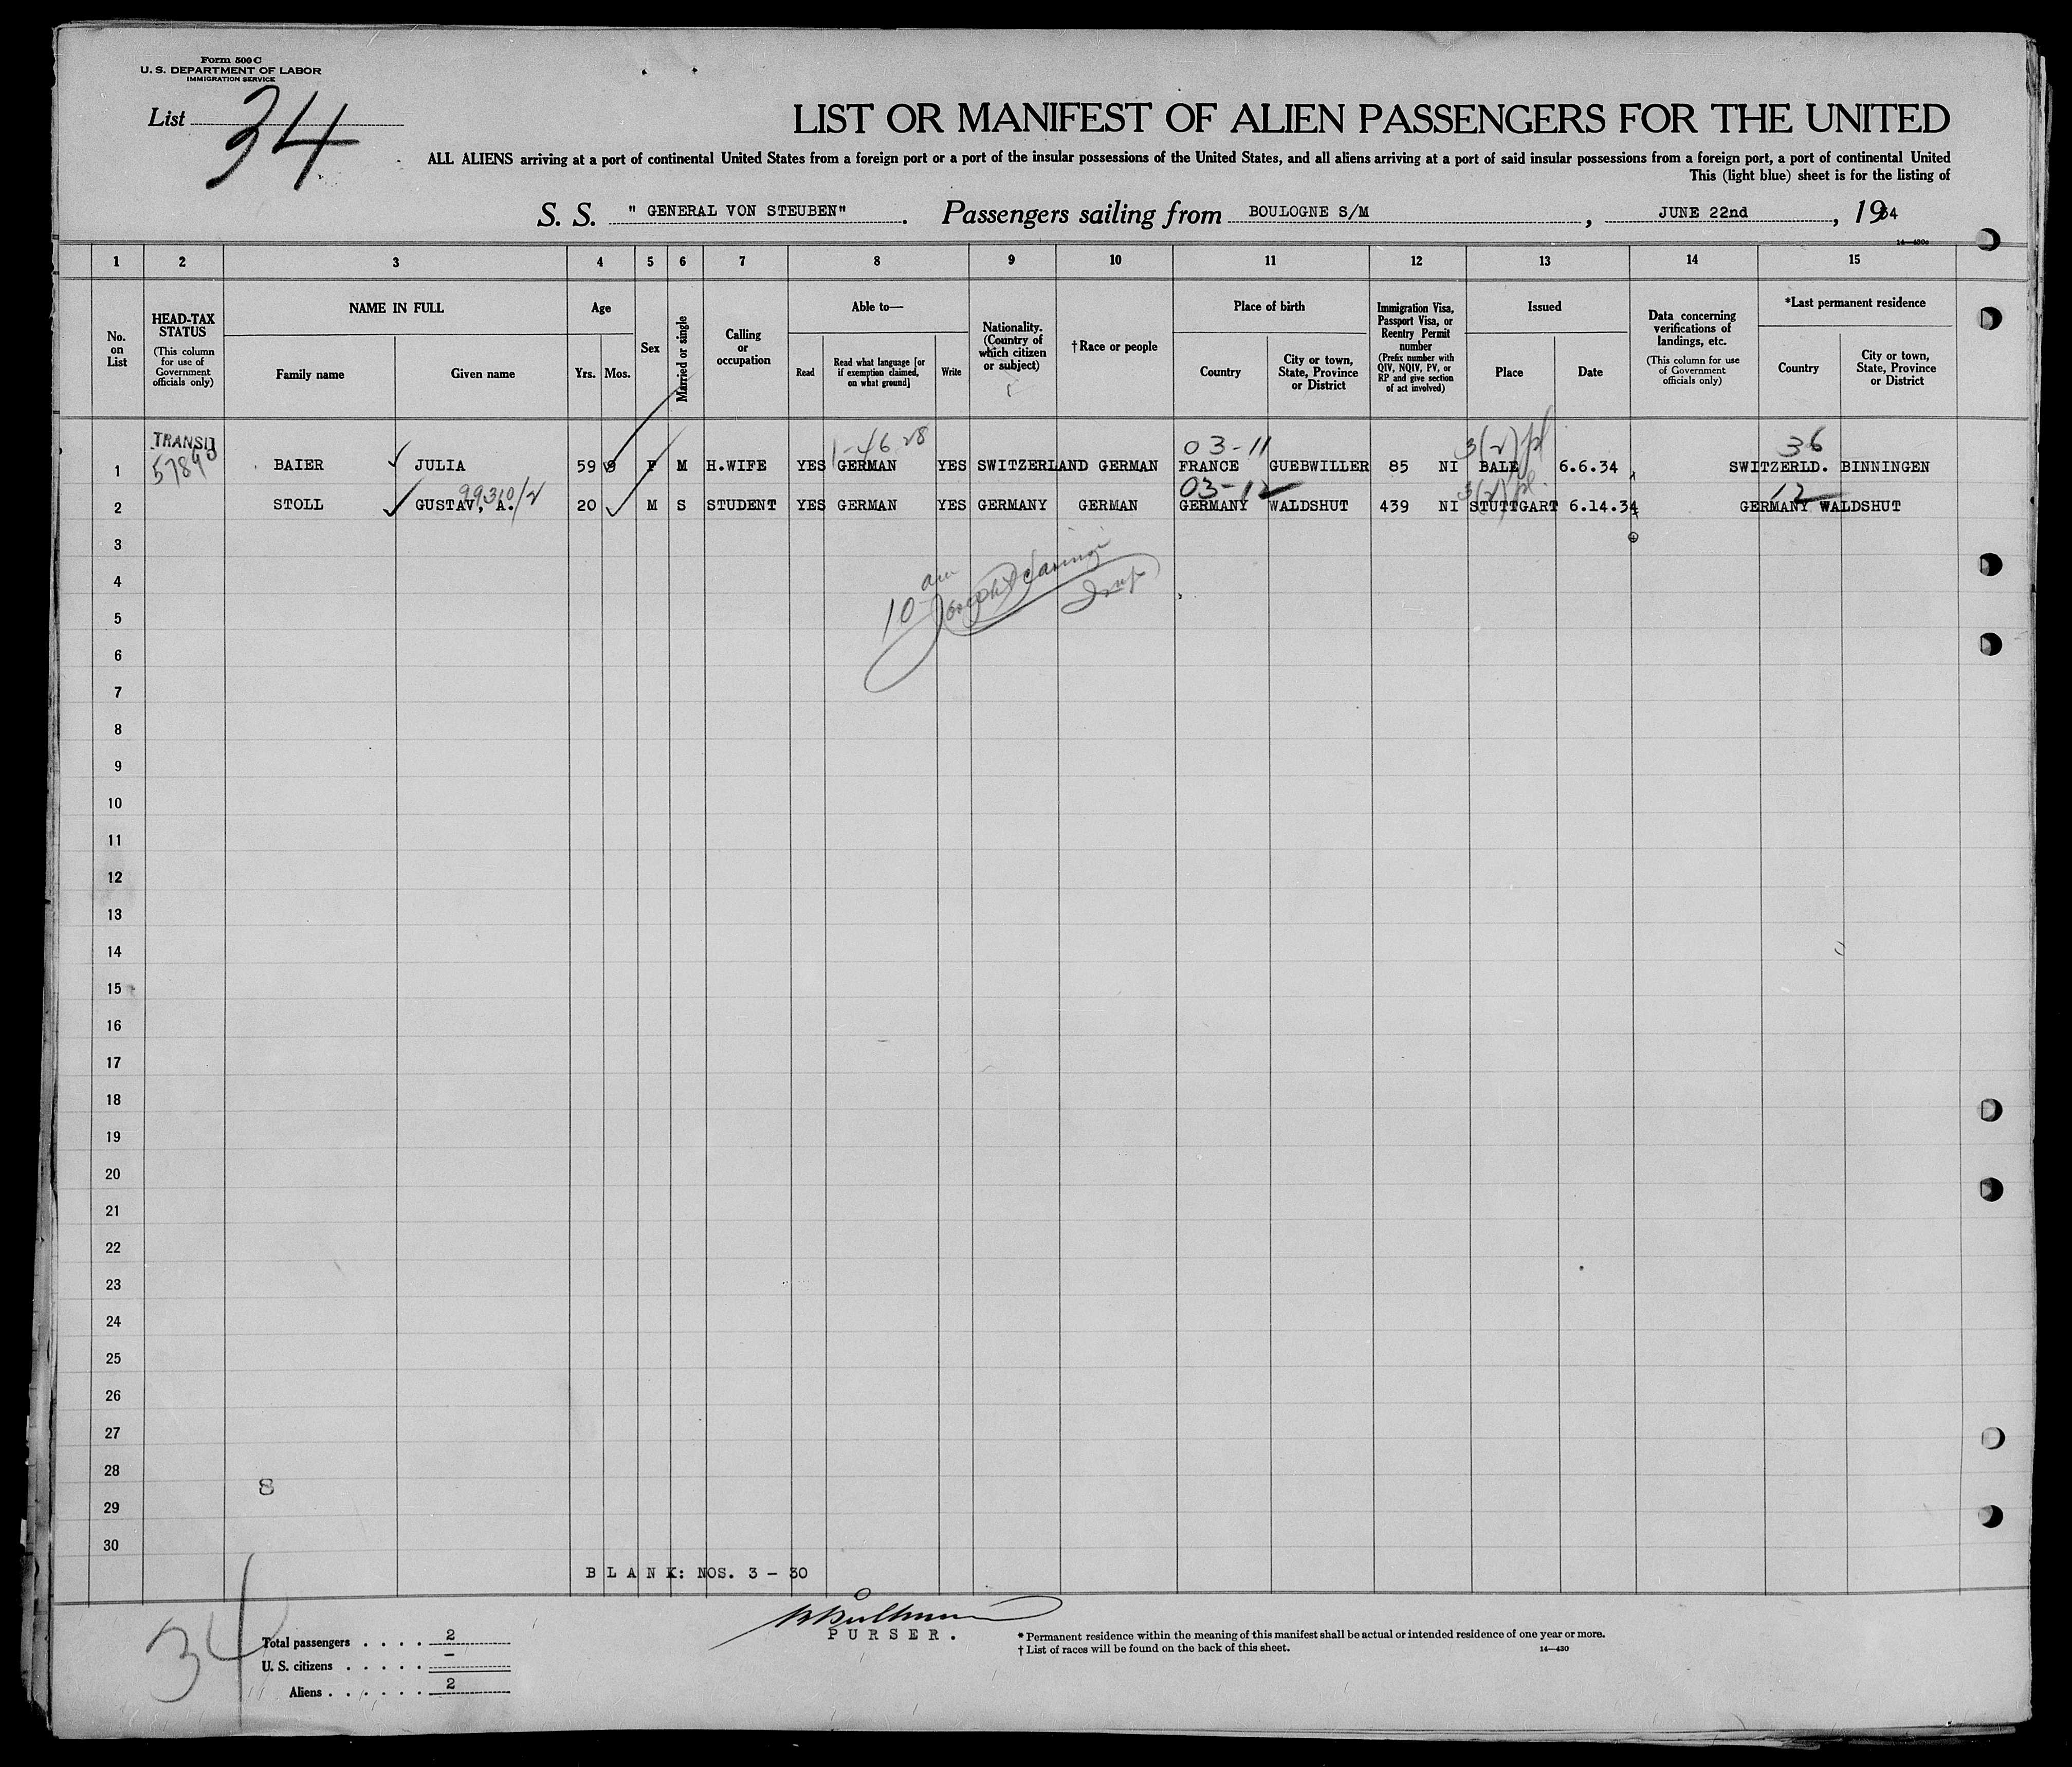 Form 500 C
U. S. DEPARTMENT OF LABOR
IMMIGRATION SERVICE
List 34
LIST OR MANIFEST OF ALIEN PASSENGERS FOR THE UNITED
ALL ALIENS arriving at a port of continental United States from a foreign port or a port of the insular possessions of the United States, and all aliens arriving at a port of said insular possessions from a foreign port, a port of continental United
This (light blue) sheet is for the listing of
S. S. " GENERAL VON STEUBEN" . Passengers sailing from BOULOGNE S/M , JUNE 22nd , 1934
14—430c
1 2 3 4 5 6 7 8 9 10 11 12 13 14 15
No. on List
HEAD-TAX STATUS (This column for use of Government officials only)
NAME IN FULL
Family name
Given name
Age
Yrs.
Mos.
Sex
Married or single
Calling or occupation
Able to—
Read
Read what language [or if exemption claimed, on what ground]
Write
Nationality. (Country of which citizen or subject)
†Race or people
Place of birth
Country
City or town, State, Province or District
Immigration Visa, Passport Visa, or Reentry Permit number (Prefix number with QIV, NQIV, PV, or RP and give section of act involved)
Issued
Place
Date
Data concerning verifications of landings, etc. (This column for use of Government officials only)
*Last permanent residence
Country
City or town, State, Province or District
TRANSIT 1-46 28 03-11 3(2) pl 36
1 BAIER JULIA 59 9 F M H.WIFE YES GERMAN YES SWITZERLAND GERMAN FRANCE GUEBWILLER 85 NI BALE 6.6.34 SWITZERLD. BINNINGEN
99310/2 03-12 3(2) pl. 12
2 STOLL GUSTAV, A. 20 M S STUDENT YES GERMAN YES GERMANY GERMAN GERMANY WALDSHUT 439 NI STUTTGART 6.14.34 GERMANY WALDSHUT
3
4
10 am
5
6
7
8
9
10
11
12
13
14
15
16
17
18
19
20
21
22
23
24
25
26
27
28
8
29
30
B L A N K: NOS. 3 - 30
34
PURSER.
Total passengers . . . . 2
U. S. citizens . . . . . -
Aliens . . . . . . 2
* Permanent residence within the meaning of this manifest shall be actual or intended residence of one year or more.
† List of races will be found on the back of this sheet.
14—430